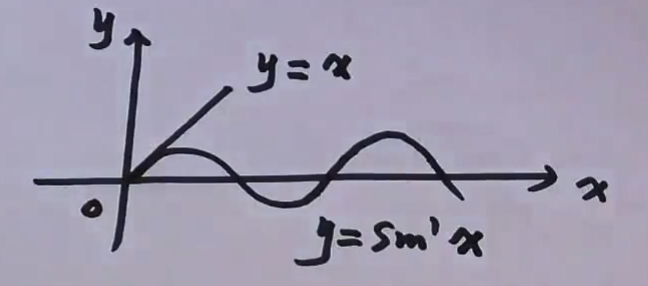 y
y = x
o
x
y = sin x